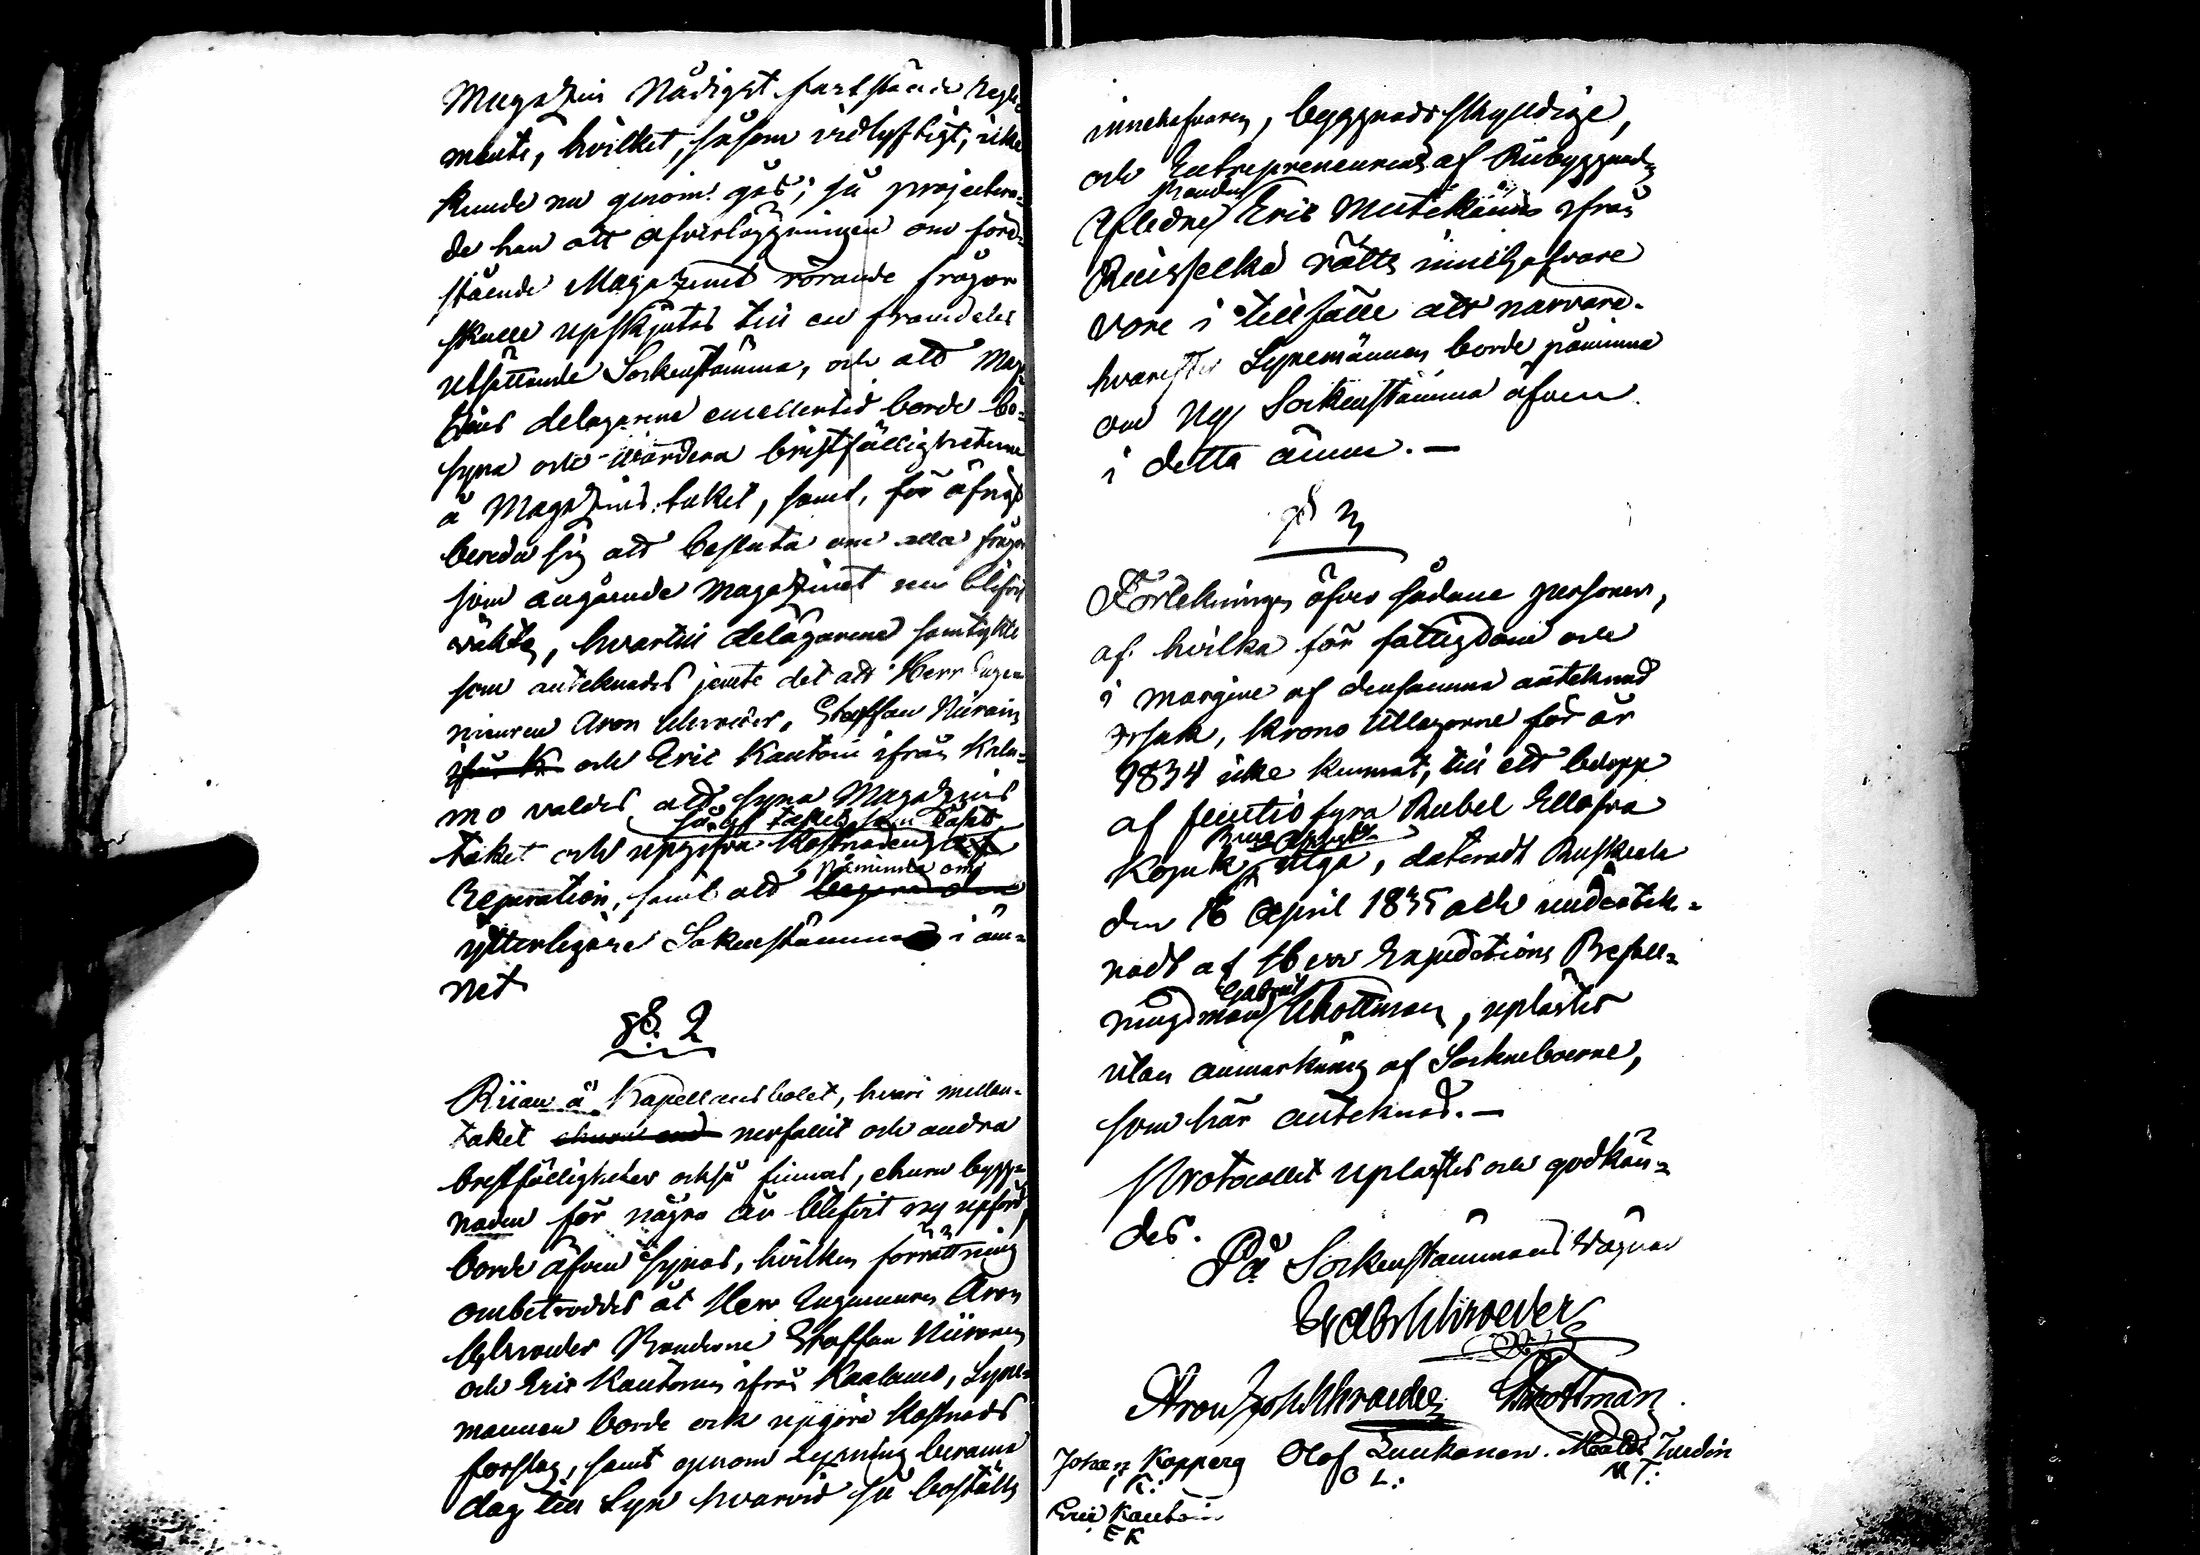 Magazin Nådigst fastställde Regle
mente, hvilket, såsom vidlyftigt, icke
kunde nu genom gås; så projectera=
de han att öfverläggningen om före=
stående Magazinet rörande frågor
skulle upskjutas till en framdeles
utsättande Sockenstämma, och att Maga
zins delägarene emellertid borde be=
syna och värdera bristfälligheterne
å Magazins taket, samt, för öfrigt
bereda sig att besluta om alla frågor
som angående Magazinet nu blifvit
väkte, hvartill delägarene samtykte
som anteknades jemte det att Herr Inge
nieuren Aron Schroeder, Staffan Niiran
ifrån K och Eric Kantoin ifrån Kala=
mo valdes att syna Magazins
så af taket som
taket och upgifva kostnaden
påminna om
Reparation, samt att begära om
ytterligare Sokenstämma i äm=
net
§. 2
Riian å Kapellansbolet, hvari mellan=
taket nerfallit och andra
brestfälligheter också finnas, ehuru bygg=
naden för några år blifvit ny upförd,
borde äfven synas, hvilken förrättning
ombetroddes åt Herr Ingenieuren Aron
Schroeder Bönderne Staffan Niiranen
och Eric Kantoinen ifrån Kaalamo, Syne=
männen borde ock upgöra kostnads
förslag, samt genom lysning berama
dag till Syn hvarvid så boställs
innehafvaren, byggnadsskyldige,
och Entrepreneuren af Riibyggnad,
Bonden
Afledne Eric Mutikainens ifrån
Ruisselkä rätts innehafvare
vore i tillfälle att närvara.
hvarefter Synemännen borde påminna
om ny Sockenstämma äfven
i detta ämne. —
§ 3
Förtekningen öfver sådane personer,
af hvilka för fattigdom och
i margine af densamma anteknad
orsak, Krono Utlagorne för år
1834 icke kunnat, till ett belopp
af femtio fyra Rubel Ellofva
Kopek utgå, daterad Ruskeala
den 16 April 1835 och undertek=
nadt af Herr Expeditions Befall=
Gabriel
ningsman Schottman, uplästes
utan anmärkning af Socknebœrne,
som här anteknas. —
Protocollet uplästes och godkän=
des.
På Sockenstämmans Vägnar
Schroeder
Aron Joh Schroeder Schottman
Johan Kopperg Olof Luukonen. Matts Turdin
I K: O L: M T:
Eric Kantoin
E K